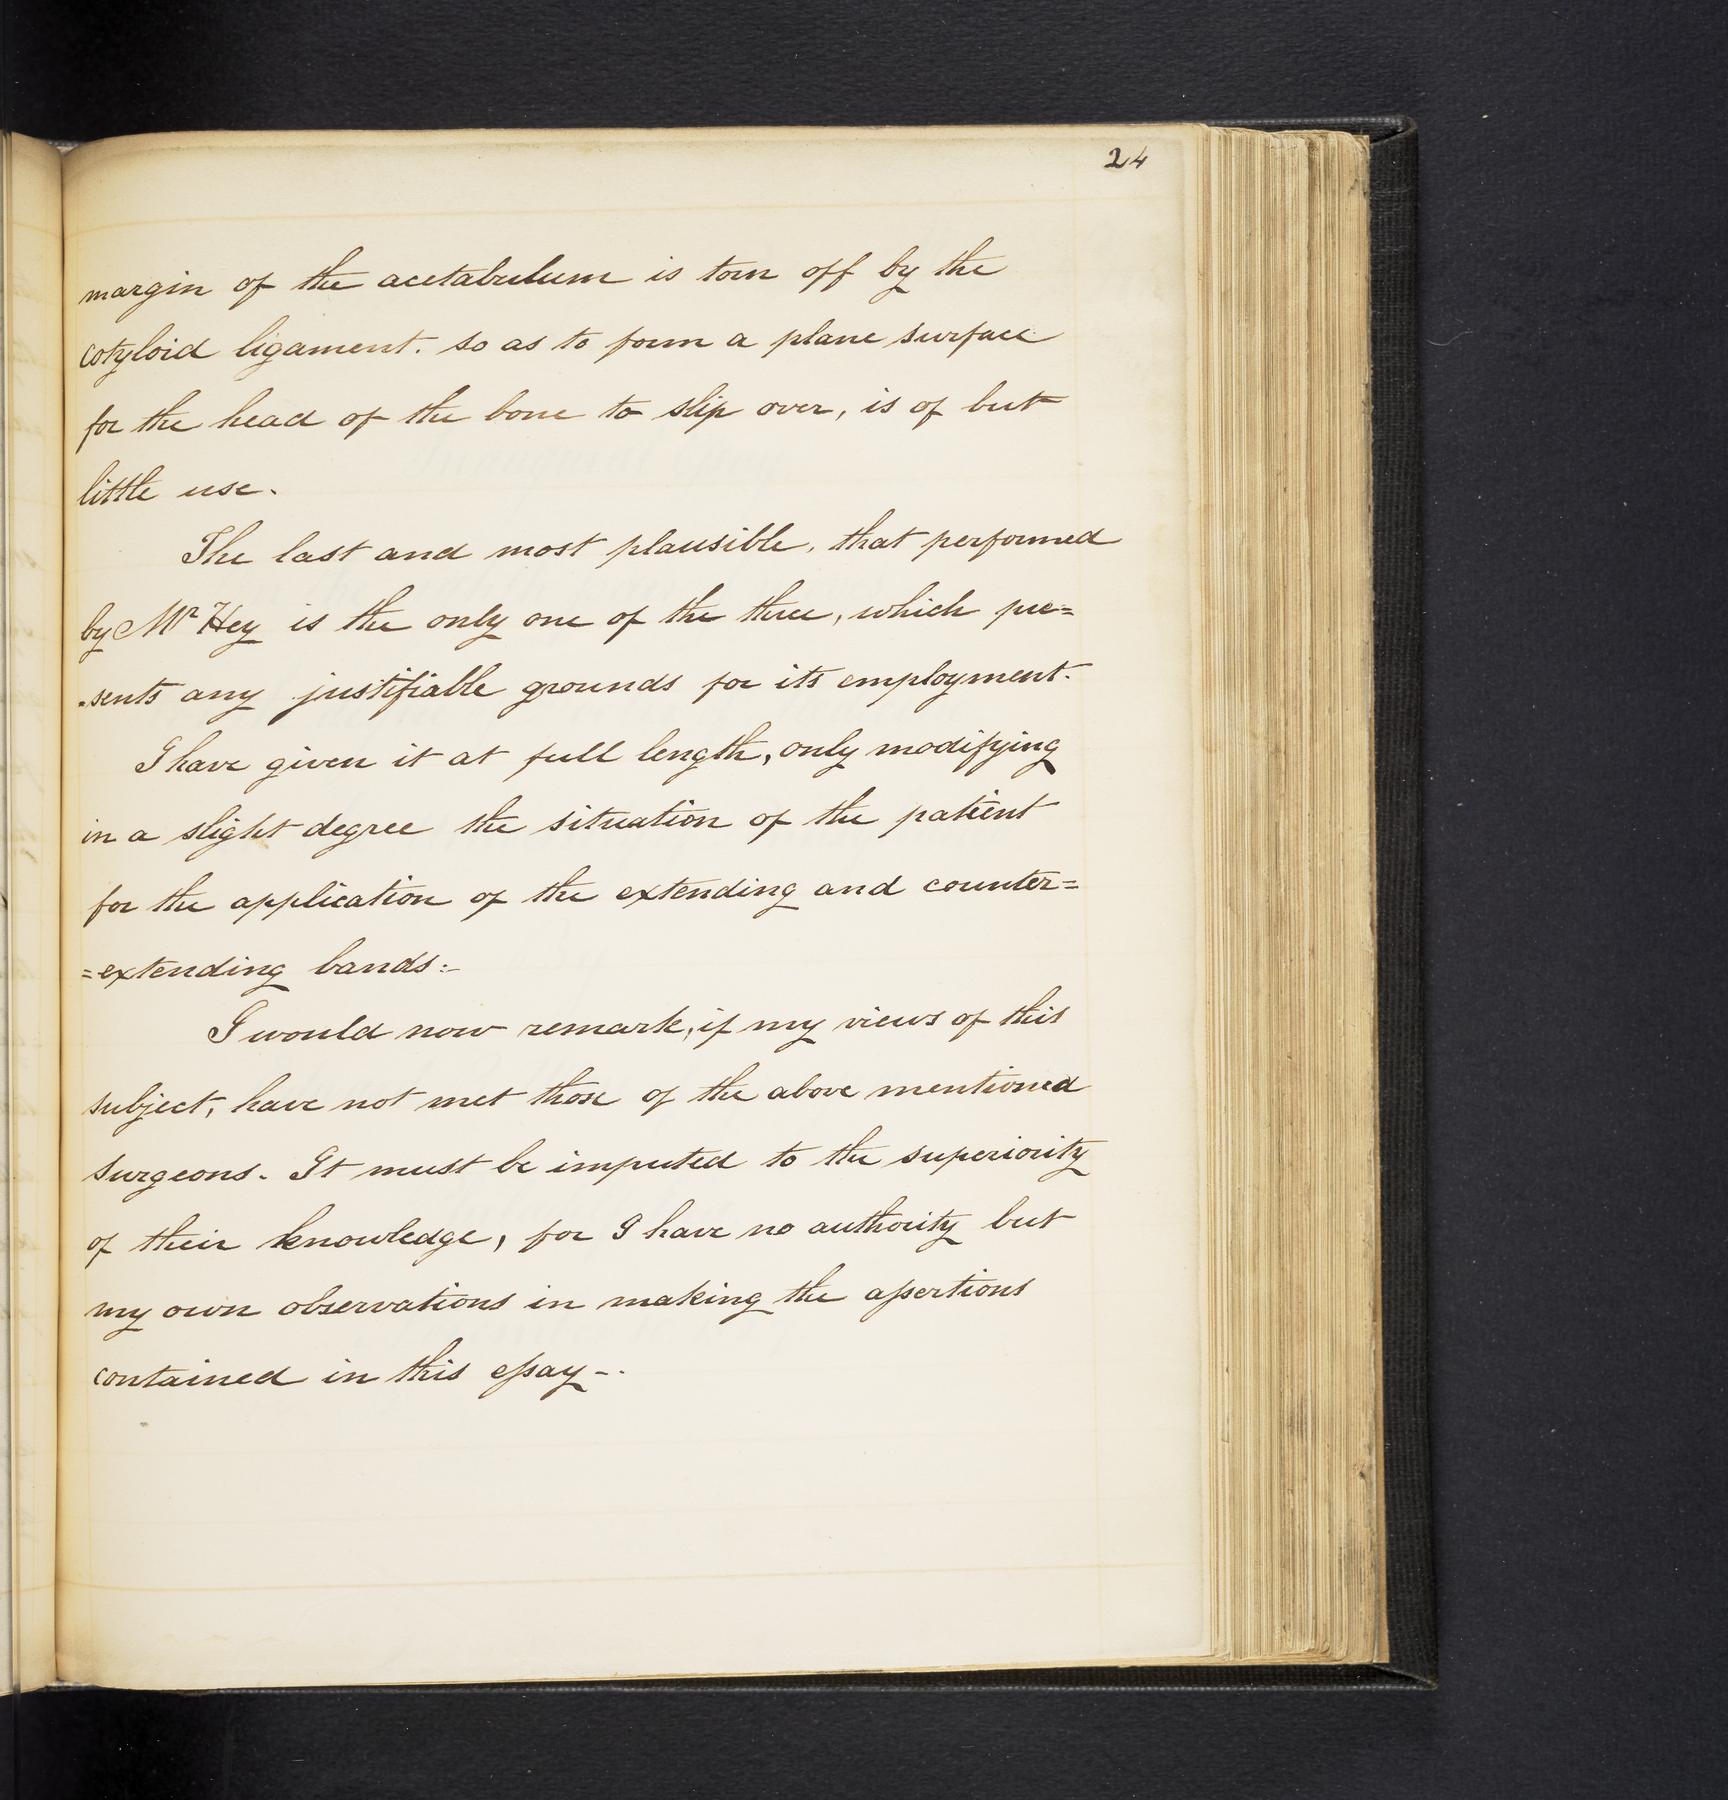 24
margin of the acetabulum is torn off by the
cotyloid ligament. so as to form a plane surface
for the head of the bone to slip over, is of but
little use.
The last and most plausible, that performed
by Mr Hey is the only one of the three, which pre=
-sents any justifiable grounds for its employment.
I have given it at full length, only modifying
in a slight degree the situation of the patient
for the application of the extending and counter=
=extending bands:-
I would now remark, if my views of this
subject, have not met those of the above mentioned
surgeons. It must be imputed to the superiority
of their knowledge, for I have no authority but
my own observations in making the aſsertions
contained in this eſsay-.